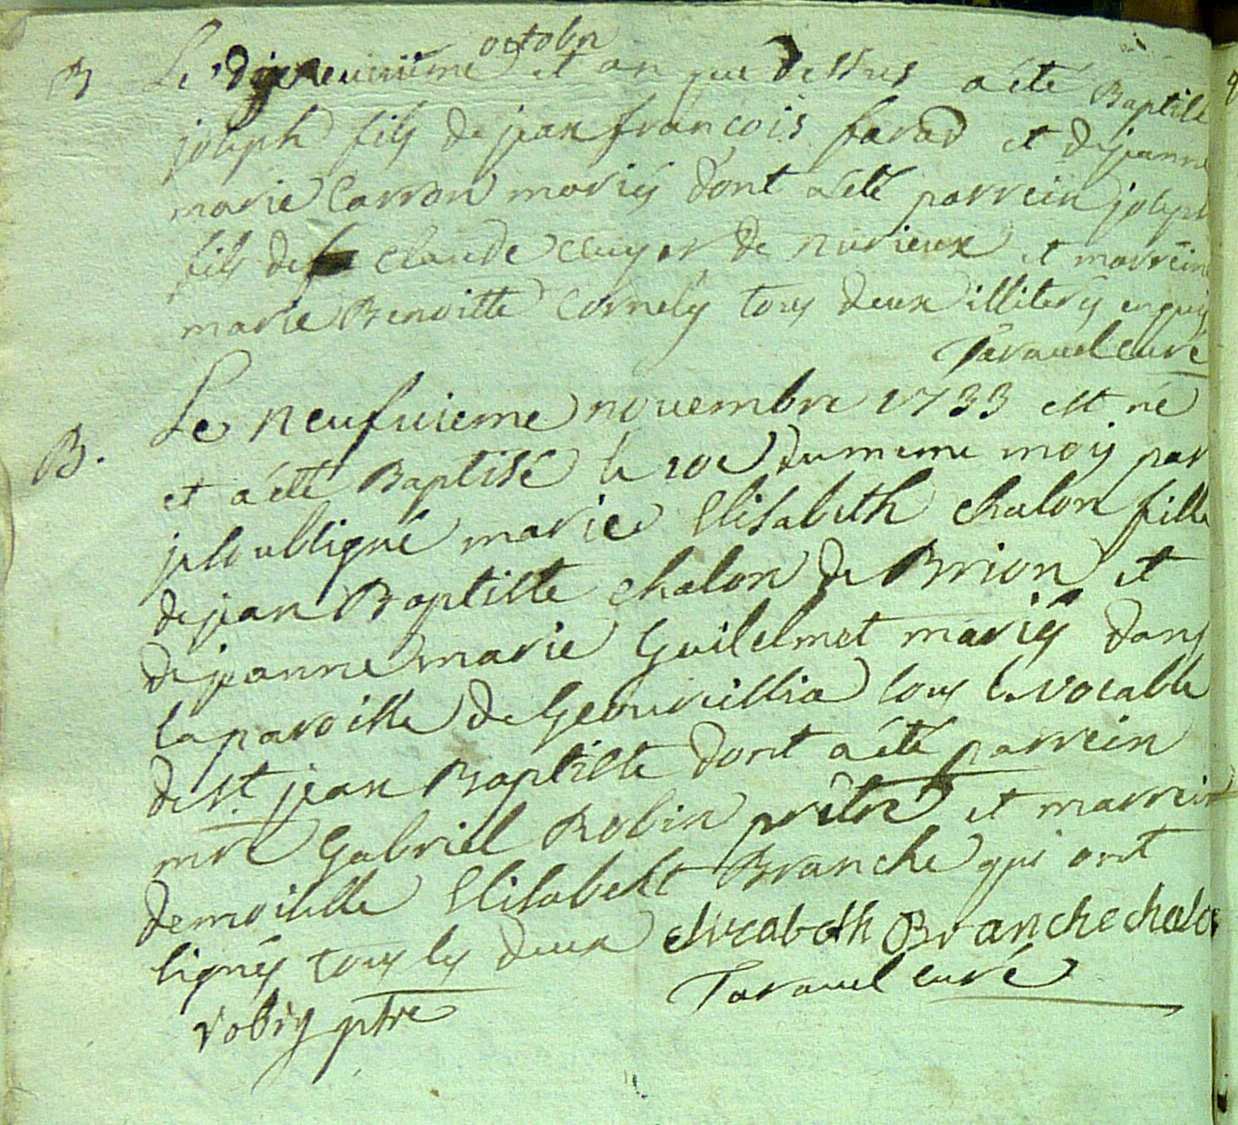 B Le dixneuvieme octobre et an que dessus a été Baptisé
joseph fils de jean françois favad et de jeanne
marie Carron mariés dont a été parrein joseph
fils de claude de nurieux et marreine
marie Benoitte Cornely tous deux illiterés enquis
Tavauel curé
B. Le neufvieme novembre 1733 est né
et a été Baptisé le 10e du meme mois par
je soubsigné marie Elisabeth chalon fille
de jean Baptiste chalon de Brion et
de jeanne marie Guilelmet mariés dans
la paroisse de Geovreissia sous le vocable
de st. jean Baptiste dont a été parrein
mre Gabriel Robin prêtre et marrein
demoiselle Elisabeht Branche qui ont
signés tous les deux elizabeth Branche chalon
robin ptre Tavauel curé